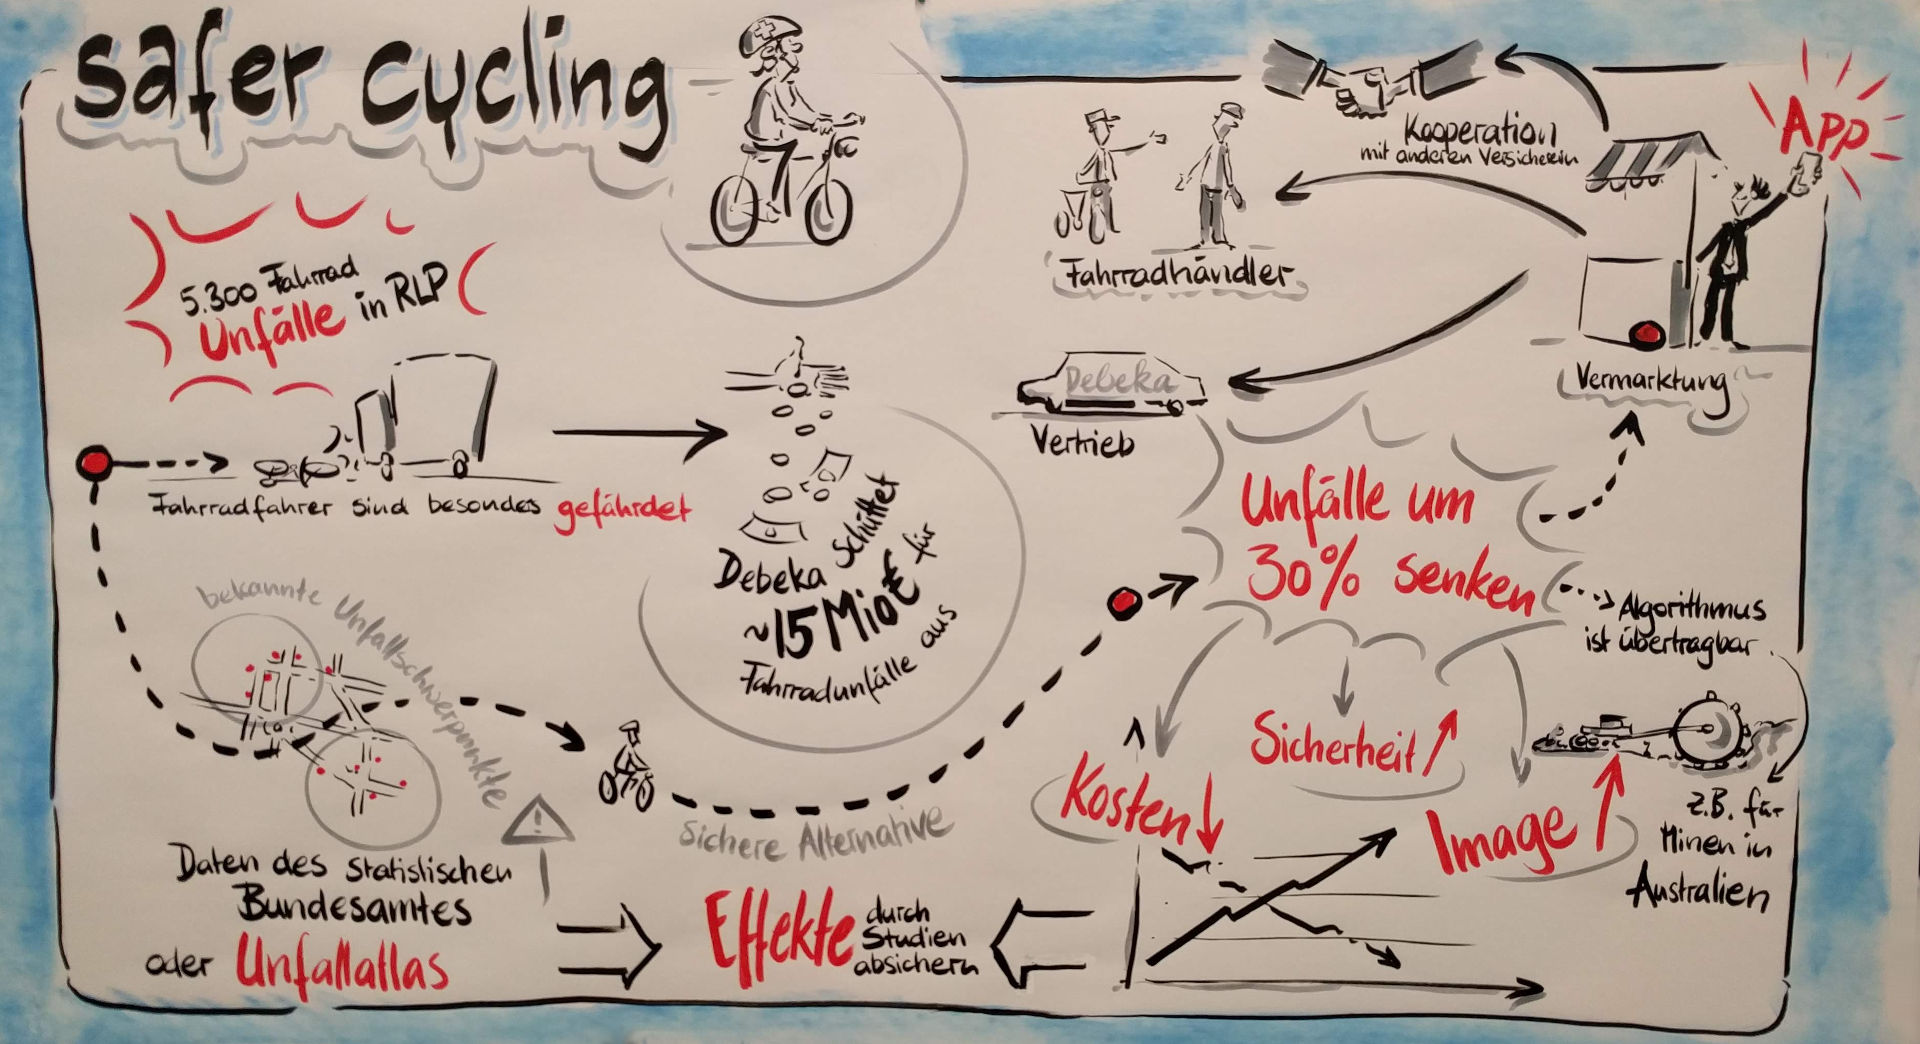 safer cycling
5.300 Fahrrad
Unfälle in RLP
Fahrradfahrer sind besonders gefährdet
bekannte Unfallschwerpunkte
Daten des statistischen
Bundesamtes
oder Unfallatlas
Debeka schüttet
~15 Mio € für
Fahrradunfälle aus
Sichere Alternative
Effekte durch
Studien
absichern
Kooperation
mit anderen Versicherern
App
Fahrradhändler
Debeka
Vertrieb
Vermarktung
Unfälle um
30% senken
Algorithmus
ist übertragbar
Kosten
Sicherheit
Image
z.B. für
Minen in
Australien